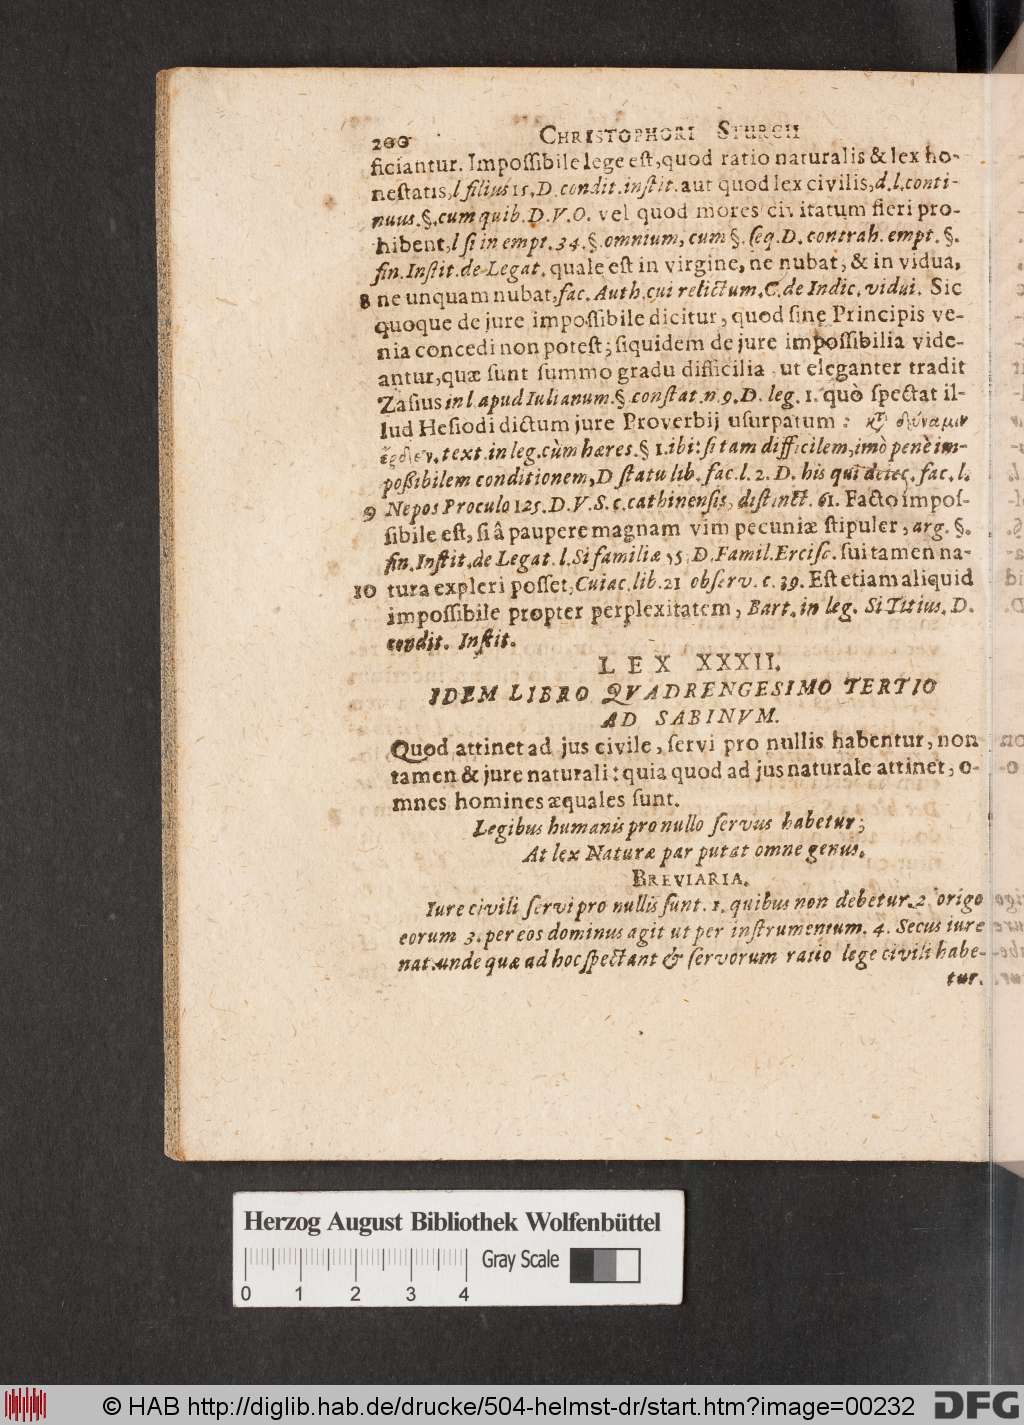 200 CHRISTOPHORI STURCII
ficiantur. Impoſſibile lege eſt, quod ratio naturalis & lex ho-
neſtatis, l filius 15. D. condit. inſtit. aut quod lex civilis, d. l. conti-
nuus. §. cum quib. D. V. O. vel quod mores civitatum fieri pro-
hibent, l ſi in empt. 34. §. omnium, cum §. ſeq. D. contrah. empt. §.
fin. Inſtit. de Legat. quale eſt in virgine, ne nubat, & in vidua,
8 ne unquam nubat, fac. Auth. cui relictum. C. de Indic. vidui. Sic
quoque de jure impoſſibile dicitur, quod ſine Principis ve-
nia concedi non poteſt; ſiquidem de jure impoſſibilia vide-
antur, quæ ſunt ſummo gradu difficilia, ut eleganter tradit
Zaſius in l. apud Iulianum. § conſtat. n. 9. D. leg. 1. quò ſpectat il-
lud Heſiodi dictum jure Proverbij uſurpatum: δύναμιν
ἔρδειν. text. in leg. cùm hæres. § 1. ibi: ſi tam difficilem, imò penè im-
poßibilem conditionem, D ſtatu lib. fac. l. 2. D. his qui deiec. fac. l.
9 Nepos Proculo 125. D. V. S. c. cathinenſis, diſtinct. 61. Facto impoſ-
ſibile eſt, ſi â paupere magnam vim pecuniæ ſtipuler, arg. §.
fin. Inſtit. de Legat. l. Si familiæ 55 D. Famil. Erciſc. ſui tamen na-
10 tura expleri poſſet, Cuiac. lib. 21 obſerv. c. 39. Eſt etiam aliquid
impoſſibile propter perplexitatem, Bart. in leg. Si Titius. D.
condit. Inſtit.
LEX XXXII.
IDEM LIBRO QVADRENGESIMO TERTIO
AD SABINVM.
Quod attinet ad jus civile, ſervi pro nullis habentur, non
tamen & jure naturali: quia quod ad jus naturale attinet, o-
mnes homines æquales ſunt.
Legibus humanis pro nullo ſervus habetur;
At lex Naturæ par putat omne genus.
BREVIARIA.
Iure civili ſervi pro nullis ſunt. 1. quibus non debetur. 2 origo
eorum 3. per eos dominus agit ut per inſtrumentum. 4. Secus iure
nat. unde quæ ad hoc ſpectant & ſervorum ratio lege civili habe-
tur.
Herzog August Bibliothek Wolfenbüttel
Gray Scale
0 1 2 3 4
© HAB http://diglib.hab.de/drucke/504-helmst-dr/start.htm?image=00232
DFG